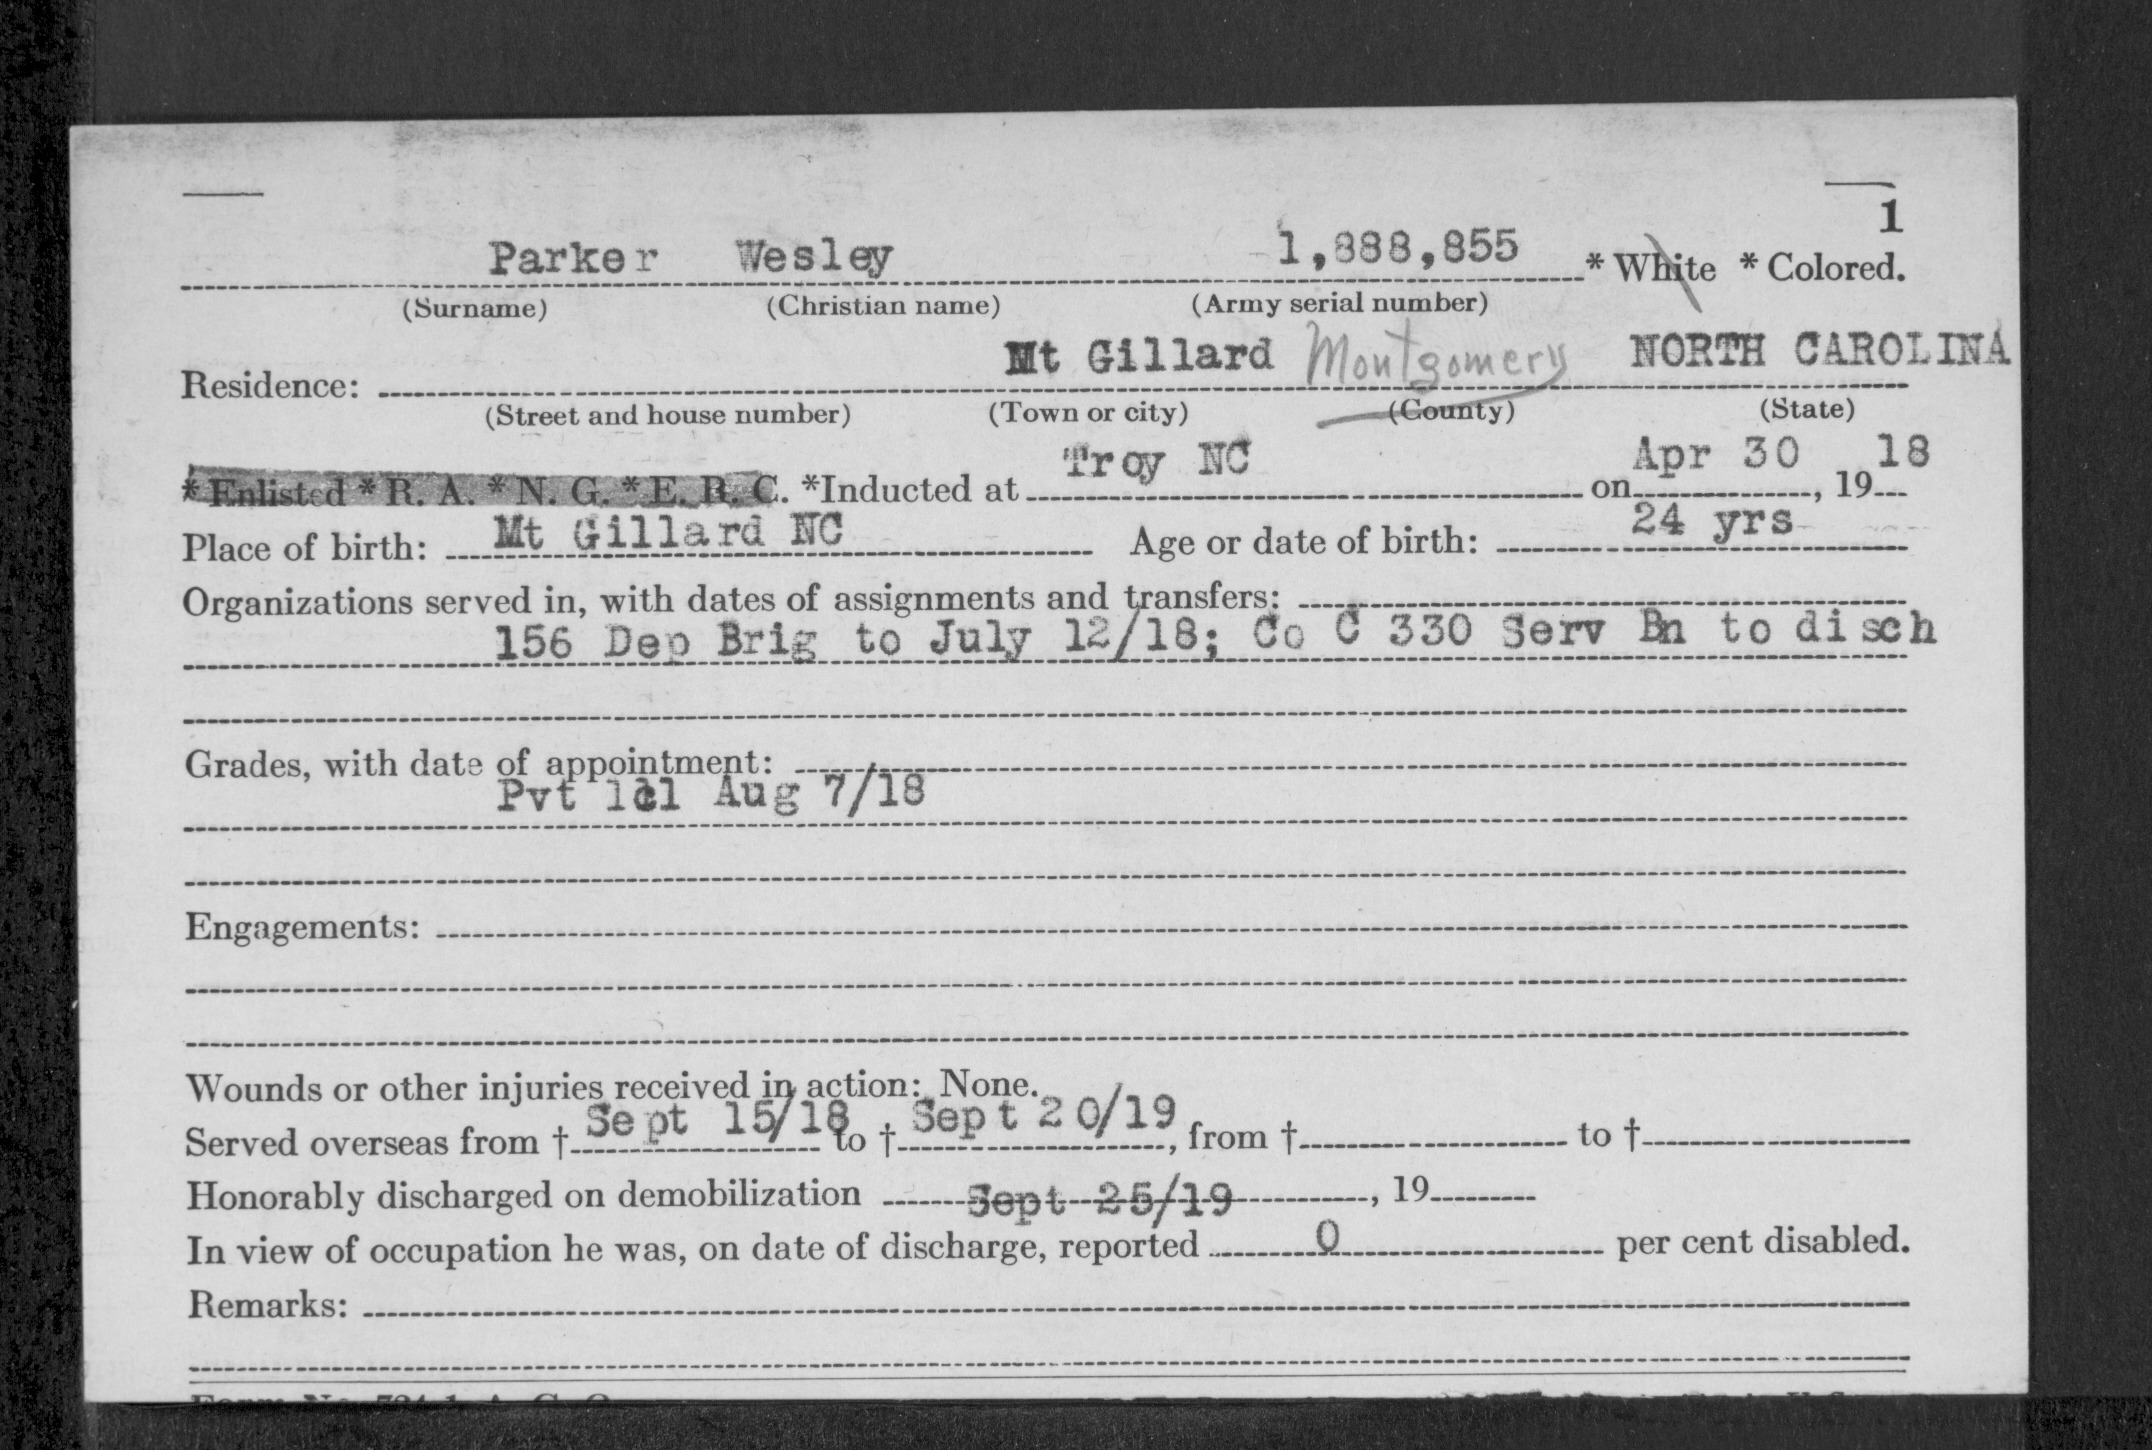 1
Parker Wesley 1,888,855 * White * Colored.
(Surname) (Christian name) (Army serial number)
Residence: Mt Gillard Montgomery NORTH CAROLINA
(Street and house number) (Town or city) (County) (State)
* Enlisted * R. A. * N. G. * E. R. C. *Inducted at Troy NC on Apr 30, 19 18
Place of birth: Mt Gillard NC Age or date of birth: 24 yrs
Organizations served in, with dates of assignments and transfers:
156 Dep Brig to July 12/18; Co C 330 Serv Bn to disch
Grades, with date of appointment:
Pvt 1cl Aug 7/18
Engagements:
Wounds or other injuries received in action: None.
Served overseas from † Sept 15/18 to † Sept 20/19, from † to †
Honorably discharged on demobilization Sept 25/19, 19
In view of occupation he was, on date of discharge, reported 0 per cent disabled.
Remarks: